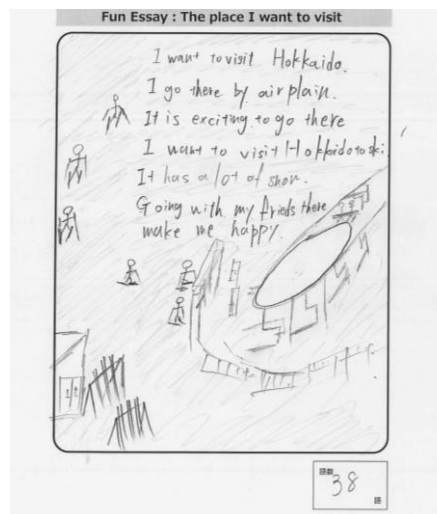 Fun Essay : The place I want to visit
I want to visit Hokkaido.
I go there by airplain.
It is exciting to go there
I want to visit Hokkaido to ski.
It has a lot of snow.
Going with my frieds there
make me happy.
語数
38
語